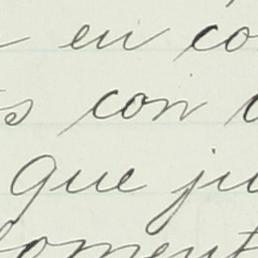 en co
s con
que ju
omen